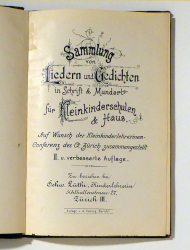 Sammlung
von
Liedern und Gedichten
in Schrift & Mundart
für Kleinkinderschulen
& Haus.
Auf Wunsch der Kleinkinderlehrerinnen-
Conferenz des Ct. Zürich zusammengestellt
II. u. verbesserte Auflage.
Zu beziehen bei
Schw. Lüthi, Kinderlehrerin
Zürich III.